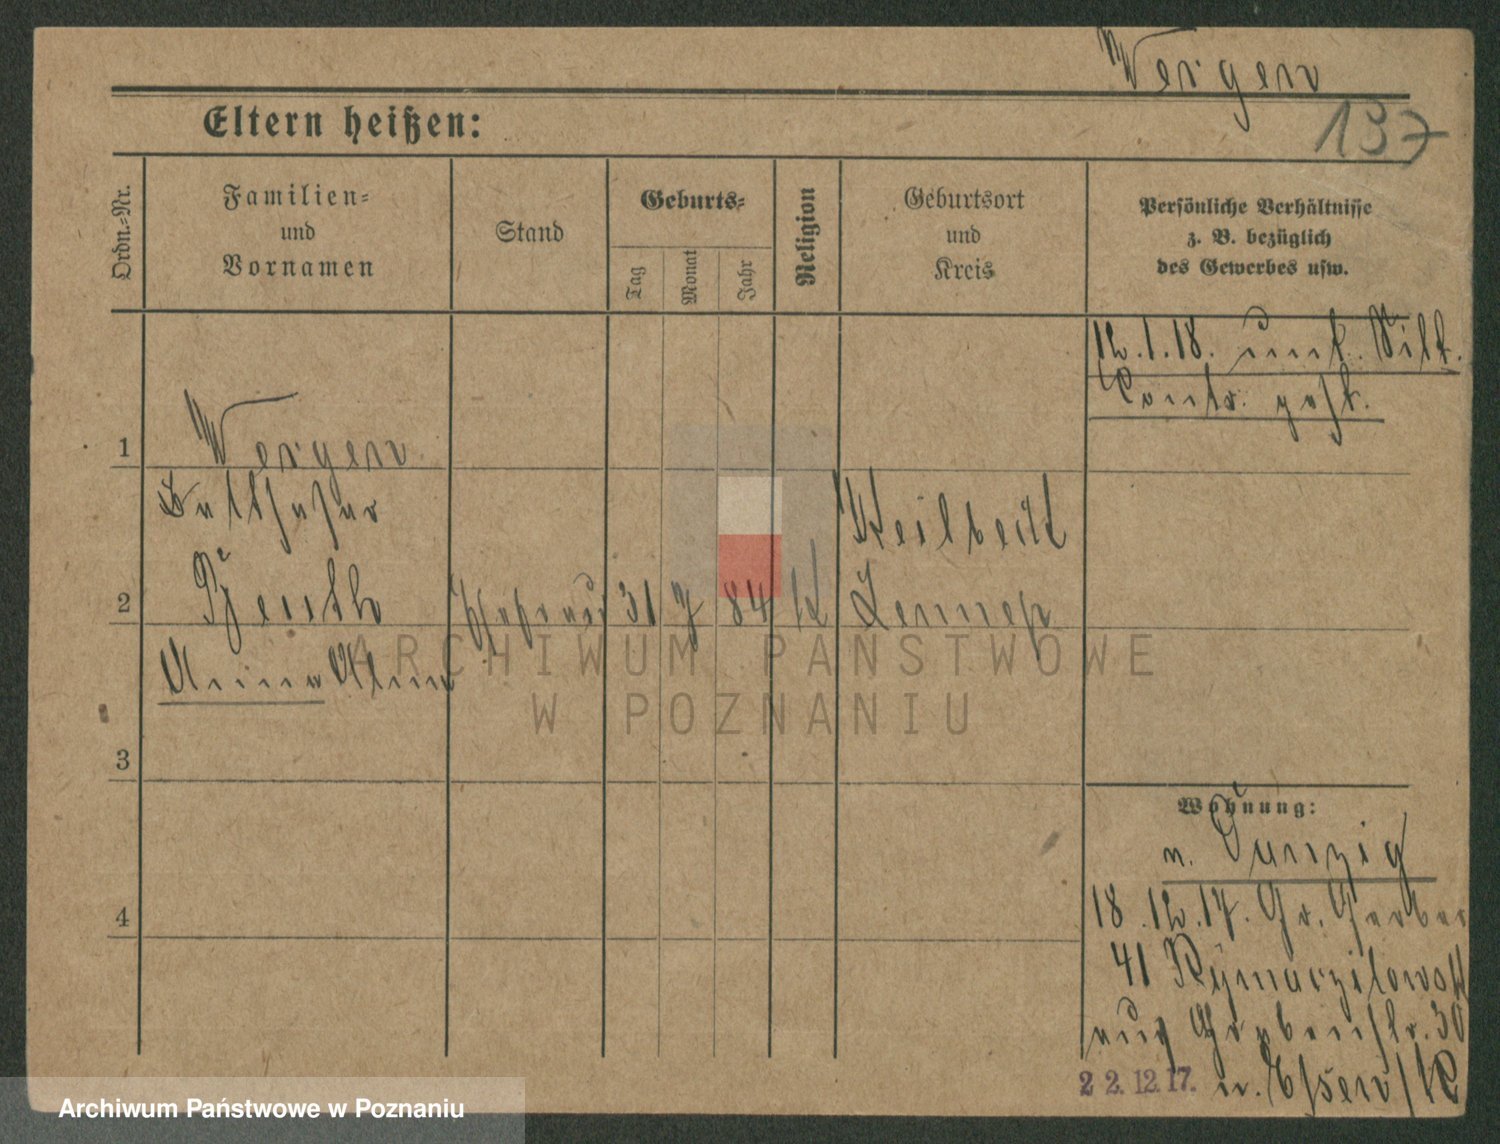 Wergen
137
Eltern heißen:
Ordn.-Nr.
Familien-
und
Vornamen
Stand
Geburts-
Tag
Monat
Jahr
Religion
Geburtsort
und
Kreis
Persönliche Verhältnisse
z. B. bezüglich
des Gewerbes usw.
12.1.18. unt. Milt.
Contr. gest.
1
Wergen
Balthasar
2
31 7 84 K
Lennep
Anna
3
Wohnung:
n. Danzig
4
18.12.17. Gr. Gerber
41
aus Grabenstr. 30
22.12.17. n. Essen
ARCHIWUM PAŃSTWOWE
W POZNANIU
Archiwum Państwowe w Poznaniu